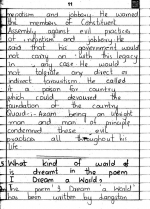 11
nepotism and jobbery. He warned
the members of Constituent
Assembly against evil practices
of nepotism and jobbery. He
said that his government would
not carry on with this legacy
In any case. He would not
tolerate any direct or
indirect favouritism. He called
it a poison for country
which could devoured the
foundation of the country.
Quaid-i-Azam being an upright
man and man of principle
condemned these evil
practices all throughout his
life
What kind of world is
dreamt in the poem
I Dream a World?
The poem "I Dream a World"
has been written by Langston